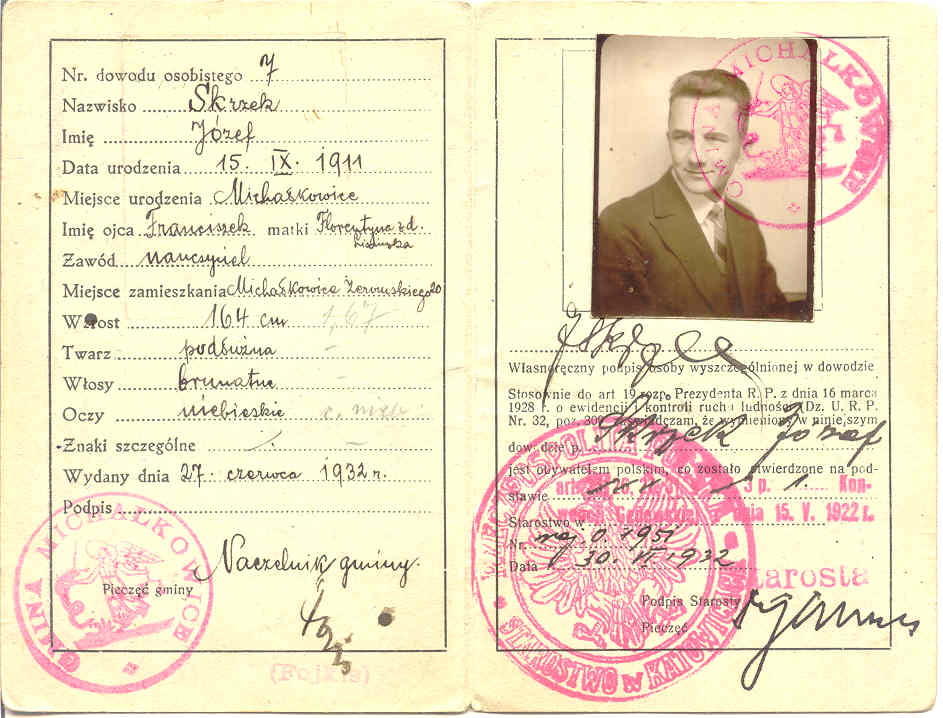 Nr. dowodu osobistego 7
Nazwisko Skrzek
Imię Józef
Data urodzenia 15. IX. 1911
Miejsce urodzenia Michałkowice
Imię ojca Franciszek matki Florentyna z d.
Zawód nauczyciel
Miejsce zamieszkania Michałkowice Żeromskiego 20
Wzrost 164 cm 1,67
Twarz podłużna
Włosy brunatne
Oczy niebieskie
Znaki szczególne
Wydany dnia 27. czerwca 1932 r.
Podpis
Naczelnik gminy.
Pieczęć gminy
GMINA MICHAŁKOWICE
(Fojkis)
GMINA MICHAŁKOWICE
Własnoręczny podpis osoby wyszczególnionej w dowodzie
Stosownie do art 19 rozp. Prezydenta R. P. z dnia 16 marca
1928 r. o ewidencji i kontroli ruchu ludności (Dz. U. R. P.
Nr. 32, poz. 309 zaświadczam, że wymieniony w niniejszym
dowodzie p. Skrzek Józef
jest obywatelem polskim, co zostało stwierdzone na pod-
stawie art. 3 p. 1 Kon-
wencji Genewskiej z dnia 15. V. 1922 r.
Starostwo w
Nr.
Data 30. VI. 1932
Starosta
Podpis Starosty
Pieczęć
RZECZPOSPOLITA POLSKA
STAROSTWO w KATOWICACH